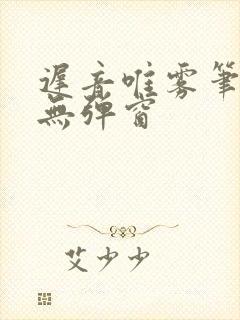 遲音唯雾筆
無彈窗
艾少少